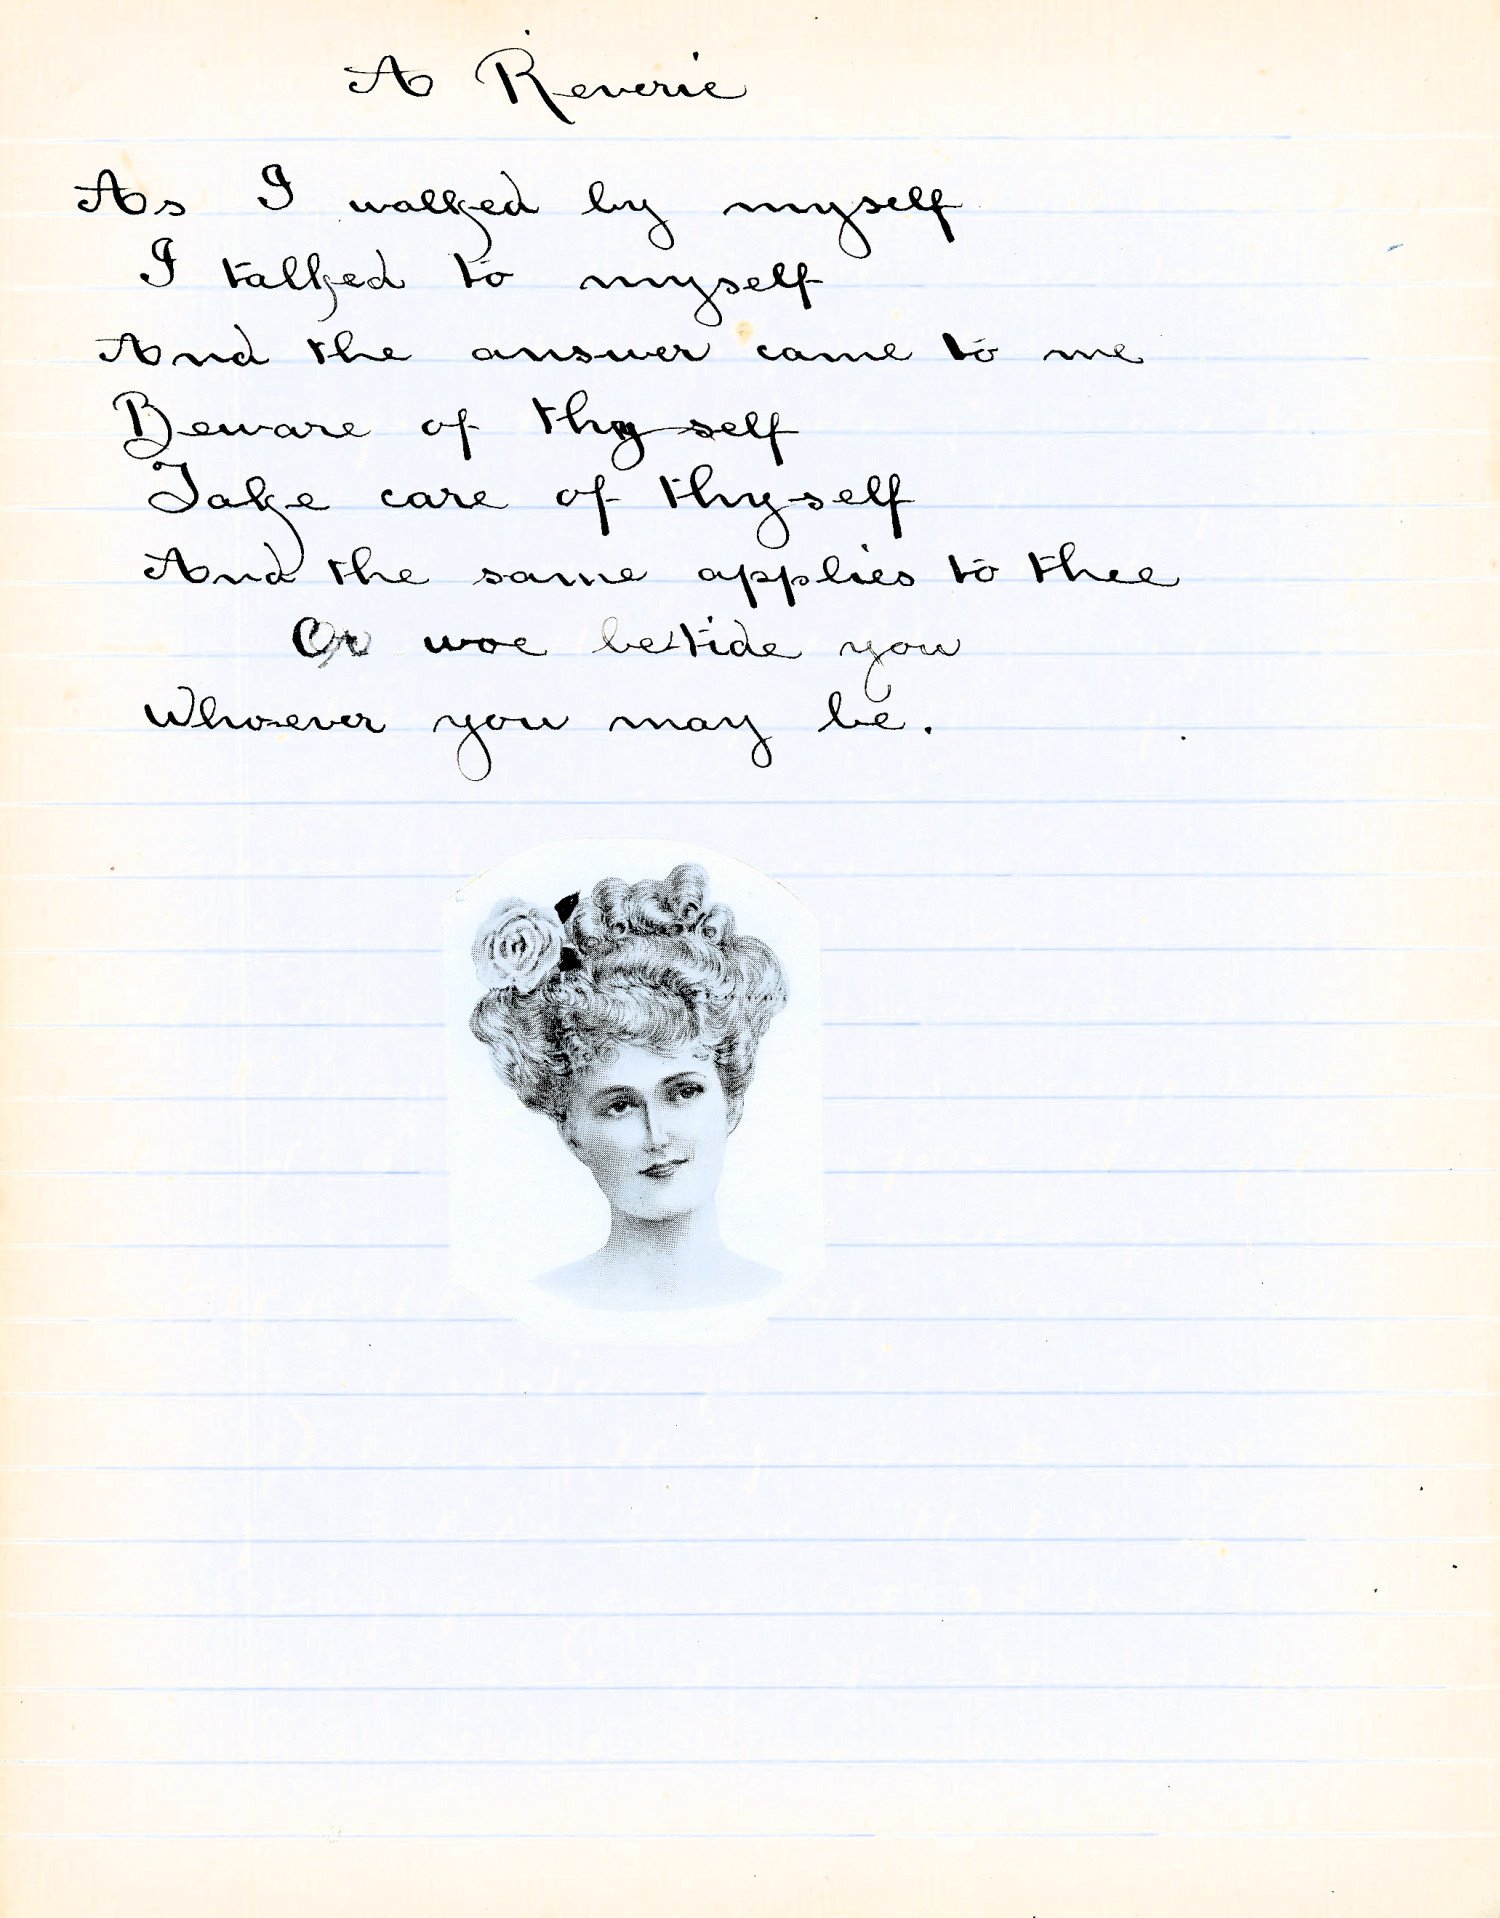 A Reverie
As I walked by myself
I talked to myself
And the answer came to me
Beware of thyself
Take care of thyself
And the same applies to thee
Or woe betide you
Whosever you may be.